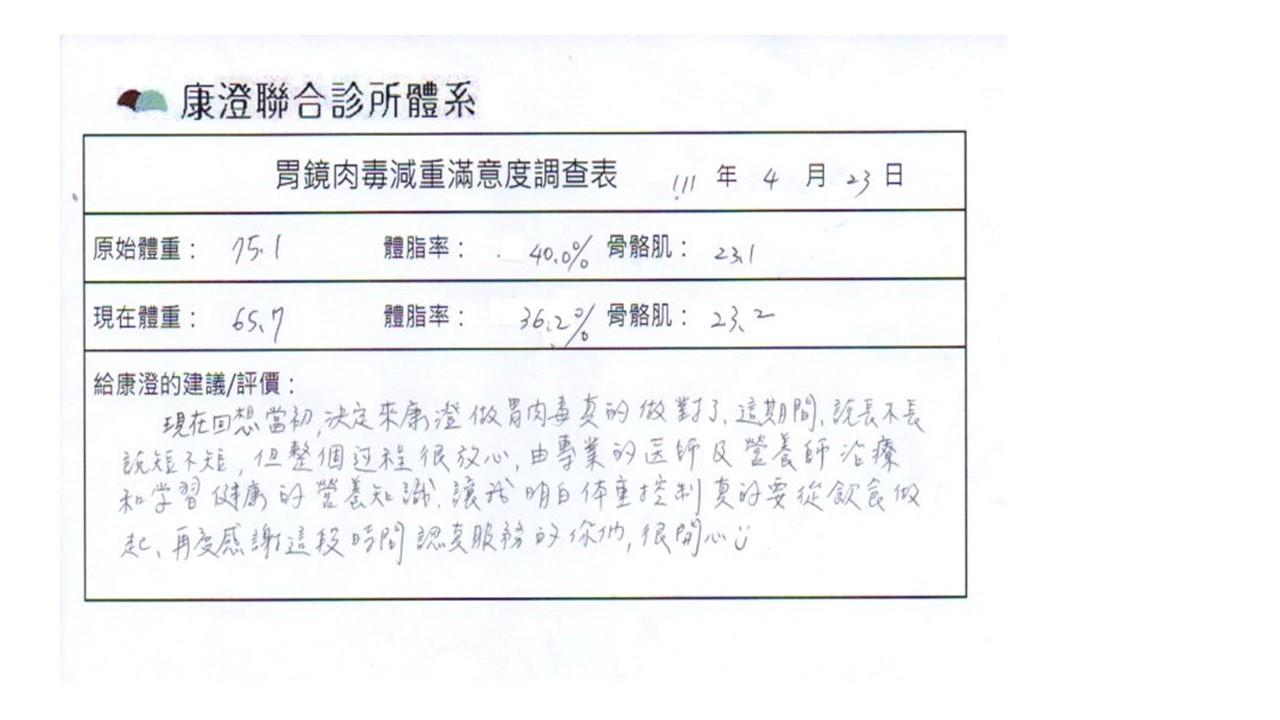 康澄聯合診所體系
胃鏡肉毒減重滿意度調查表 111 年 4 月 23 日
原始體重： 75.1 體脂率： 40.0% 骨骼肌： 23.1
現在體重： 65.7 體脂率： 36.2% 骨骼肌： 23.2
給康澄的建議/評價：
現在回想當初,決定來康澄做胃肉毒真的做對了、這期間,說長不長
說短不短,但整個过程很放心,由專業的医師及營養師治療
和学習健康的營養知識,讓我明白体重控制真的要從飲食做
起、再度感謝這段時間認真服務的你們,很開心